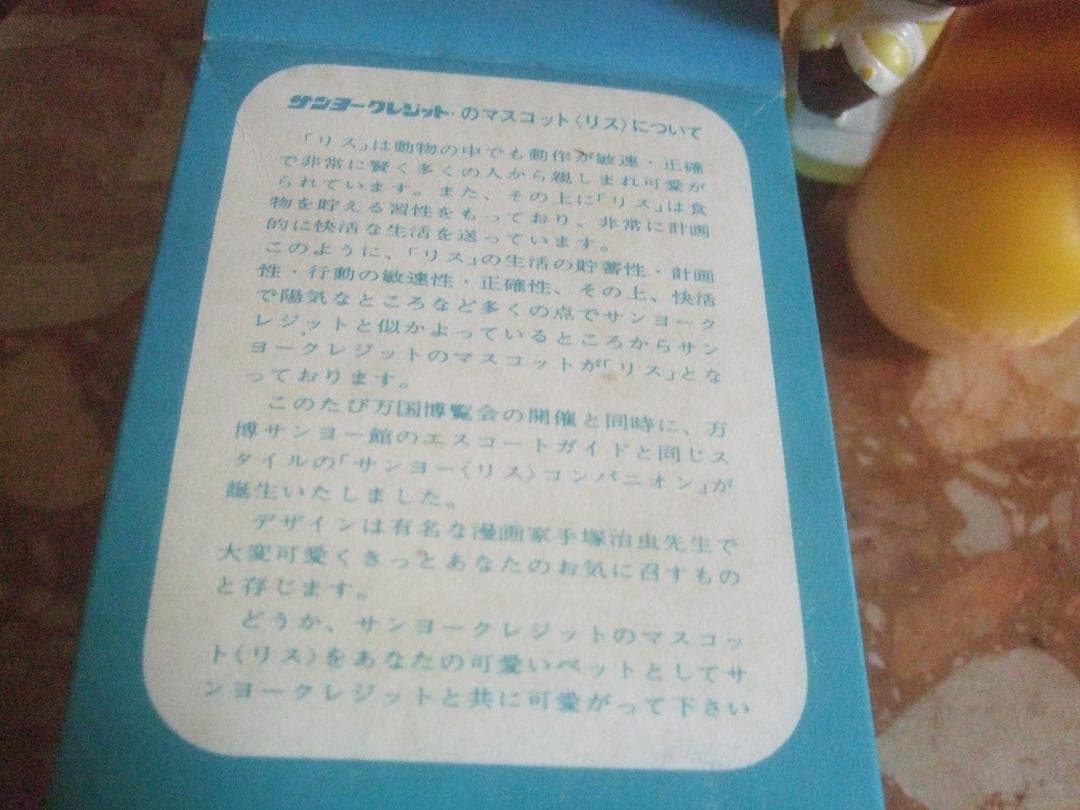 サンヨークレジット・のマスコット〈リス〉について
「リス」は動物の中でも動作が敏速・正確
で非常に賢く多くの人から親しまれ可愛が
られています。また、その上に「リス」は食
物を貯える習性をもっており、非常に計画
的に快活な生活を送っています。
このように、「リス」の生活の貯蓄性・計画
性・行動の敏速性・正確性、その上、快活
で陽気なところなど多くの点でサンヨーク
レジットと似かよっているところからサン
ヨークレジットのマスコットが「リス」とな
っております。
このたび万国博覧会の開催と同時に、万
博サンヨー館のエスコートガイドと同じス
タイルの「サンヨー〈リス〉コンパニオン」が
誕生いたしました。
デザインは有名な漫画家手塚治虫先生で
大変可愛くきっとあなたのお気に召すもの
と存じます。
どうか、サンヨークレジットのマスコッ
ト〈リス〉をあなたの可愛いペットとしてサ
ンヨークレジットと共に可愛がって下さい